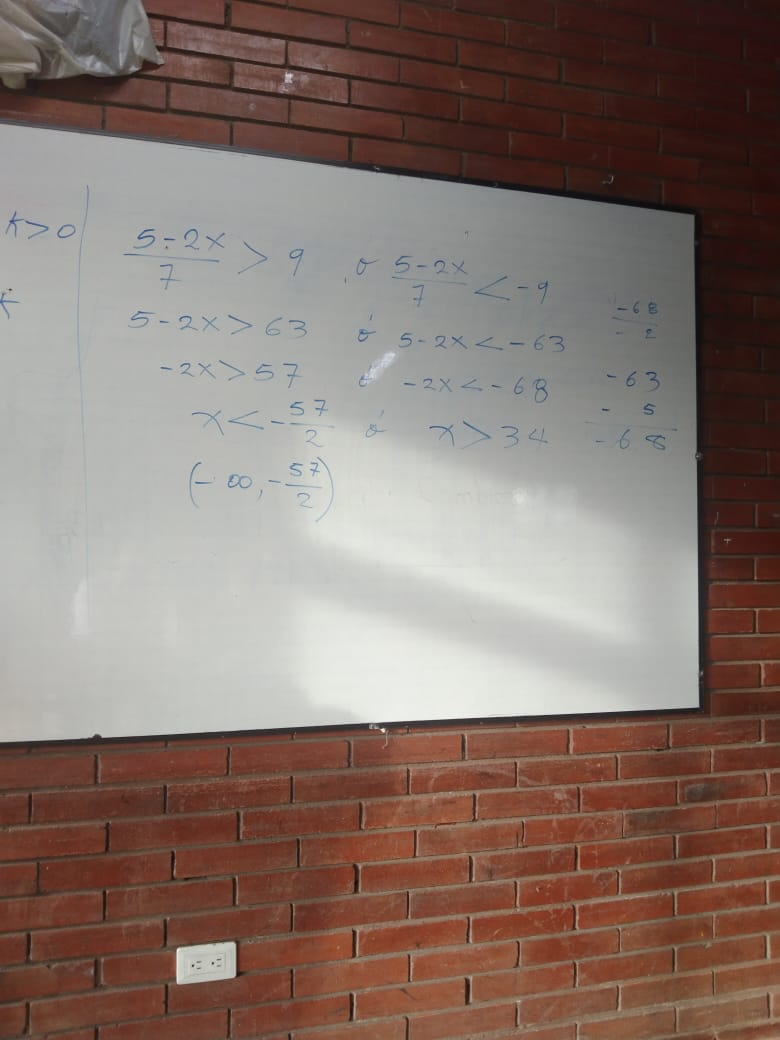 K>0
5-2x/7 > 9 ó 5-2x/7 < -9
5-2x > 63 ó 5-2x < -63
-2x > 57 ó -2x < -68
x < -57/2 ó x > 34
(-∞, -57/2)
-68
- 2
-63
- 5
-68